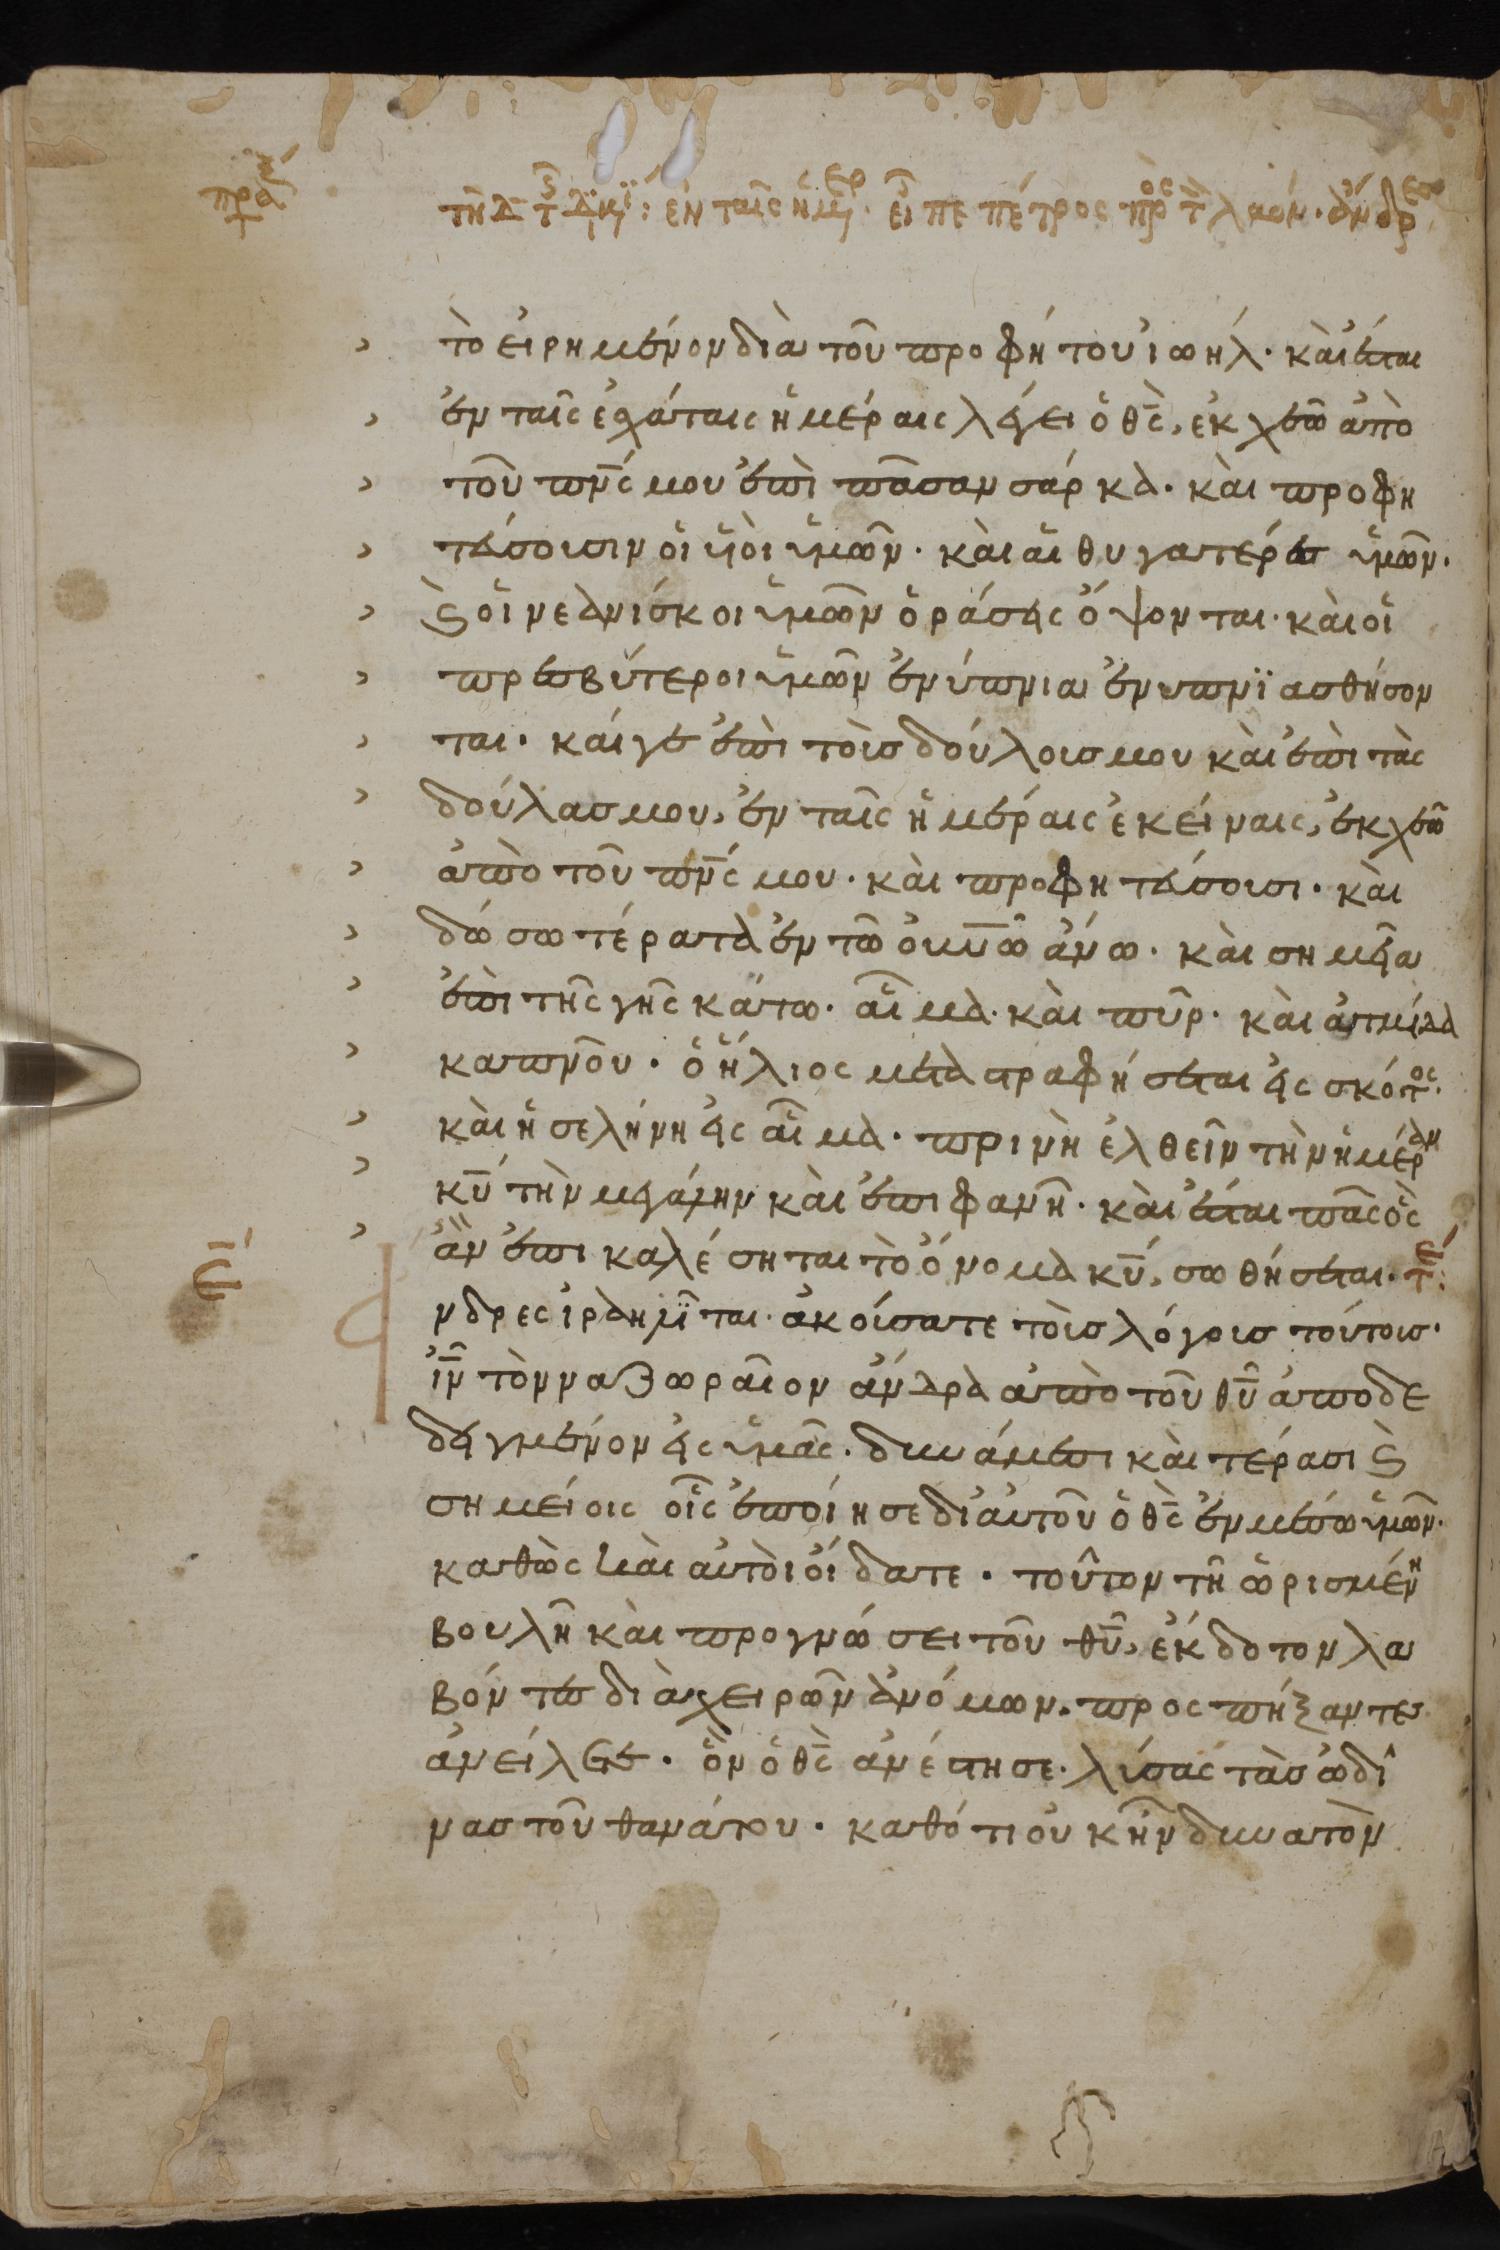 πρα
τῆ δ τ διακι: ἐν ταῖς ἡμερ εἶπε πέτρος πρὸς τ λαόν. ἄνδρες
τὸ εἰρημένον διὰ τοῦ προφήτου ἰωήλ. καὶ ἔσται
ἐν ταῖς ἐσχάταις ἡμέραις λέγει ὁ θς̄, ἐκχεῶ ἀπὸ
τοῦ πνς̄ μου ἐπὶ πᾶσαν σάρκα. καὶ προφη
τεύσουσιν οἱ ὑιοὶ ὑμῶν. καὶ αἱ θυγατέρες ὑμῶν.
ϗ οἱ νεανίσκοι ὑμῶν ὁράσεις ὄψονται. καὶ οἱ
πρεσβύτεροι ὑμῶν ἐνύπνια ἐνυπνϊασθήσον
ται. καίγε ἐπὶ τοὶς δούλοις μου καὶ ἐπὶ τὰς
δούλας μου, ἐν ταῖς ἡμέραις ἐκείναις, ἐκχεῶ
ἀπὸ τοῦ πνς̄ μου. καὶ προφητεύσουσι. καὶ
δώσω τέρατα ἐν τῶ οὐνῶ ἄνω. καὶ σημεῖα
ἐπὶ τῆς γῆς κάτω. αἷμα. καὶ πῦρ. καὶ ἀτμίδα
καπνοῦ. ὁ ἥλιος μεταστραφήσεται εἰς σκότος.
καὶ ἡ σελήνη εἰς αἷμα. πρινὴ ἐλθεῖν τὴν ἡμέραν
κῡ τὴν μεγάλην καὶ ἐπιφανῆ. καὶ ἔσται πᾶς ὃς
ἂν ἐπικαλέσηται τὸ ὄνομα κῡ, σωθήσεται. τ:
ε̄
νδρες ἰσραηλῖται. ἀκούσατε τοὺς λόγους τούτους.
ἰν̄ τὸν ναζωραῖον ἄνδρα ἀπὸ τοῦ θῡ ἀποδε
δειγμένον εἰς ὑμᾶς. δυνάμεσι καὶ τέρασι ϗ
σημείοις οἷς ἐποίησε δι' αὐτοῦ ὁ θς̄ ἐν μέσω ὑμῶν.
καθὼς καὶ αὐτοὶ οἴδατε. τοῦτον τῆ ὡρισμένη
βουλῆ καὶ προγνώσει τοῦ θῡ, ἔκδοτον λα
βόντες διὰ χειρῶν ἀνόμων. προσπήξαντες
ἀνείλετε. ὃν ὁ θς̄ ἀνέστησε. λύσας τὰς ὠδῖ
νας τοῦ θανάτου. καθότι οὐκ ἦν δυνατὸν